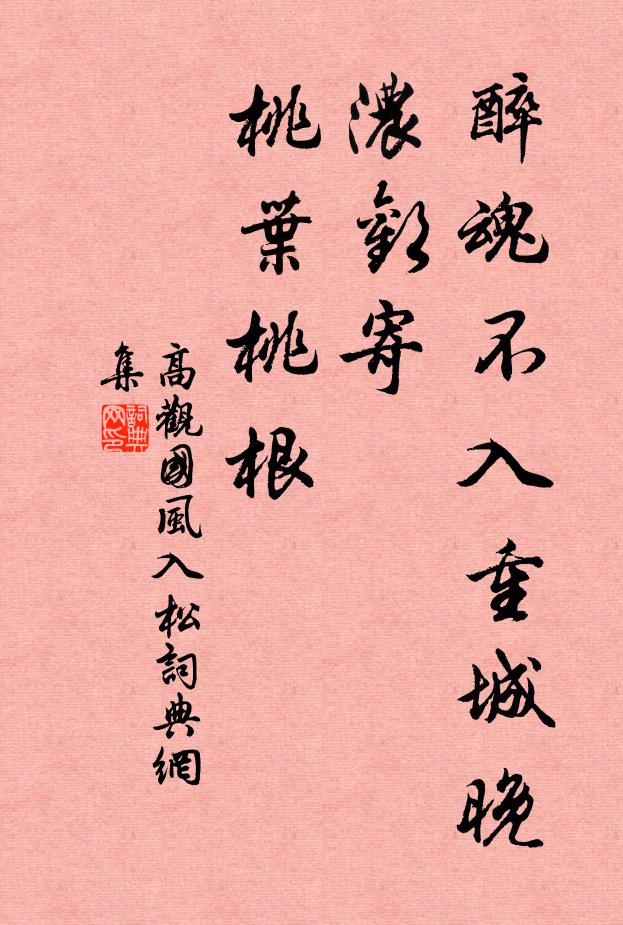 醉魂不入重城晚
濃歡寄
桃葉桃根
高觀國風入松詞典網
集
詞典
网印